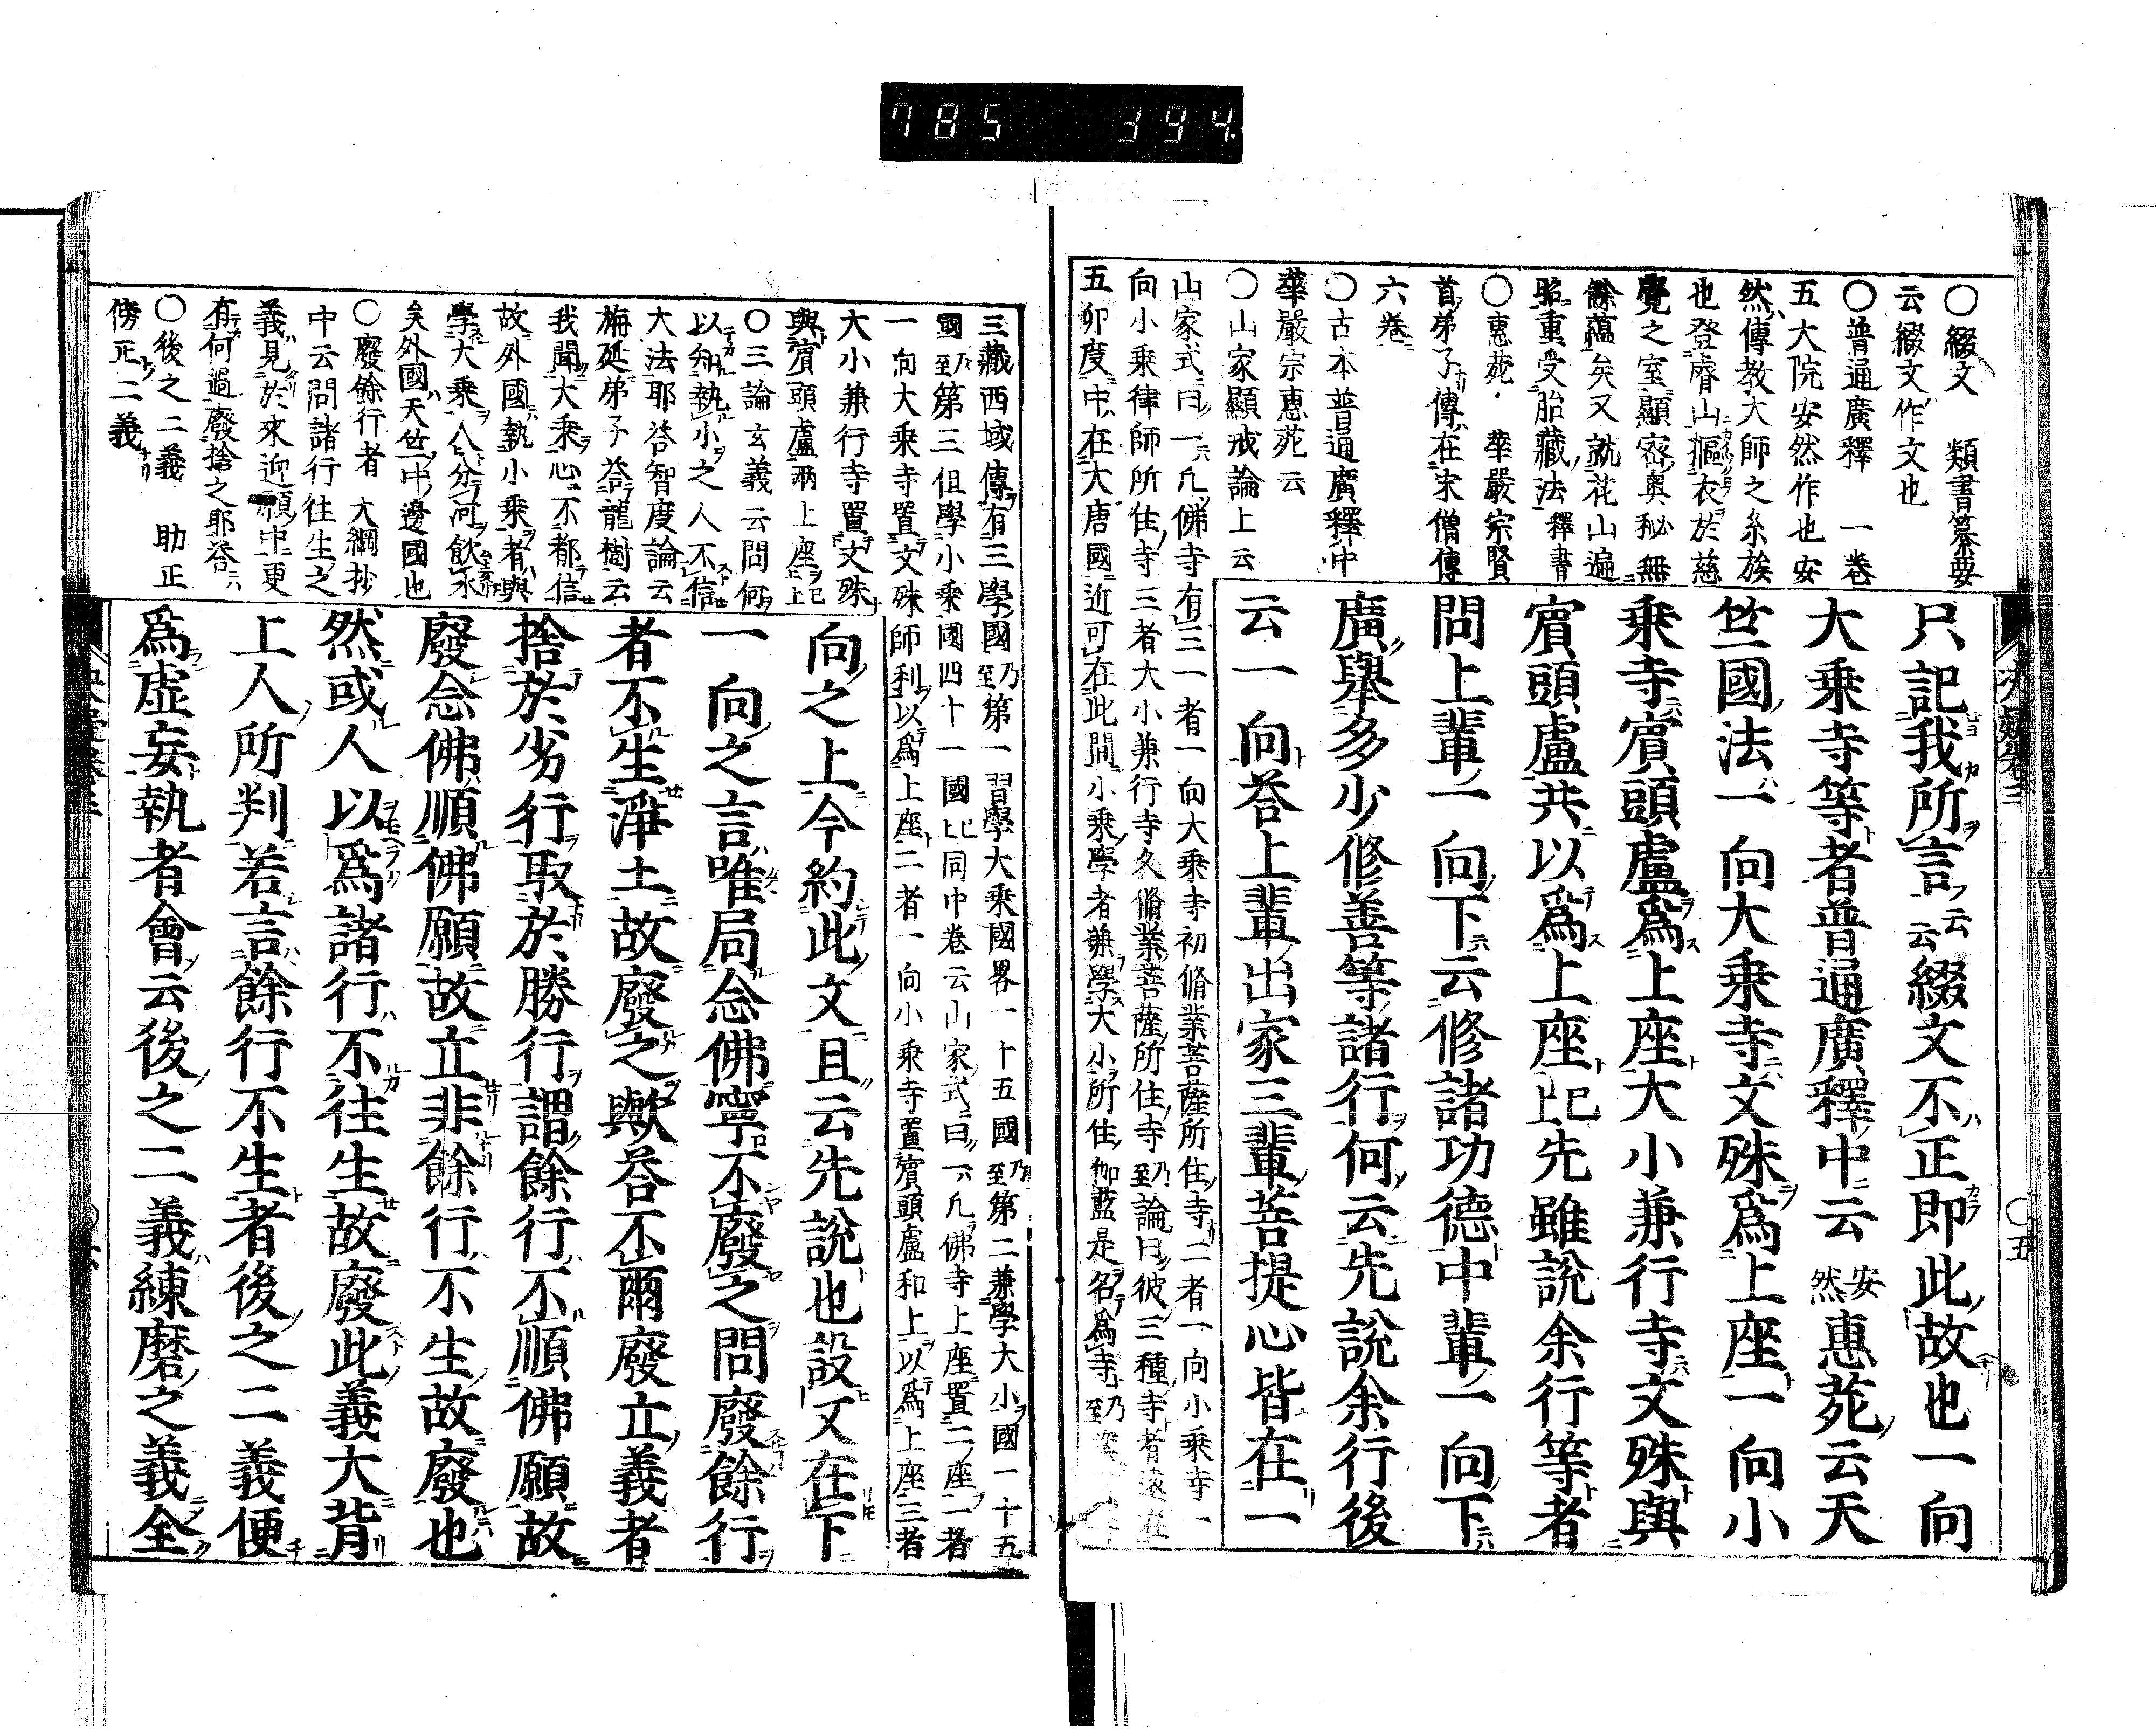 785 394.
〇綴文 類書纂要
云綴文作文也
〇普通廣釋 一卷
五大院安然作也安
然傳教大師之系族
也登睿山摳衣於慈
覺之室顯密奧秘無
餘蘊矣又就花山遍
昭重受胎藏法 釋書
〇惠苑 華嚴宗賢
首弟子傳在宋僧傳
六卷
〇古本普通廣釋中
華嚴宗惠苑云
〇山家顯戒論上云
山家式曰一凡佛寺有三一者一向大乗寺初脩業菩薩所住寺二者一向小乗寺一
向小乗律師所住寺三者大小兼行寺久脩業菩薩所住寺乃至論曰彼三種寺者遠在
五印度中在大唐國近可在此間小乗學者兼學大小所住伽藍是名爲寺乃至
只記我所言云云綴文不正即此故也一向
大乗寺等者普通廣釋中云安然惠苑云天
竺國法一向大乗寺文殊爲上座一向小
乗寺賓頭盧爲上座大小兼行寺文殊與
賓頭盧共以爲上座已上先雖説余行等者
問上輩一向下云修諸功德中輩一向下
廣舉多少修善等諸行何云先説余行後
云一向荅上輩出家三輩菩提心皆在一
决疑卷三
〇五
三藏西域傳有三學國乃至第一習學大乗國畧一十五國乃至第二兼學大小國一十五
國乃至第三但學小乗國四十一國已上同中卷云山家式曰一凡佛寺上座置二座一者
一向大乗寺置文殊師利以爲上座二者一向小乗寺置賓頭盧和上以爲上座三者
大小兼行寺置文殊
與賓頭盧兩上座已上
〇三論玄義云問何
以知執小之人不信
大法耶荅智度論云
旃延弟子荅龍樹云
我聞大乗心不都信
故外國執小乗者與
學大乗人分河飲水
矣外國天竺中邊國也
〇廢餘行者 大綱抄
中云問諸行往生之
義見於來迎願中更
有何過廢捨之耶荅
〇後之二義 助正
傍正二義
向之上今約此文且云先説也設又在下
一向之言唯局念佛寧不廢之問廢餘行
者不生淨土故廢之歟荅不爾廢立義者
捨於劣行取於勝行謂餘行不順佛願故
廢念佛順佛願故立非餘行不生故廢也
然或人以爲諸行不往生故廢此義大背
上人所判若言餘行不生者後之二義便
爲虛妄執者會云後之二義練磨之義全